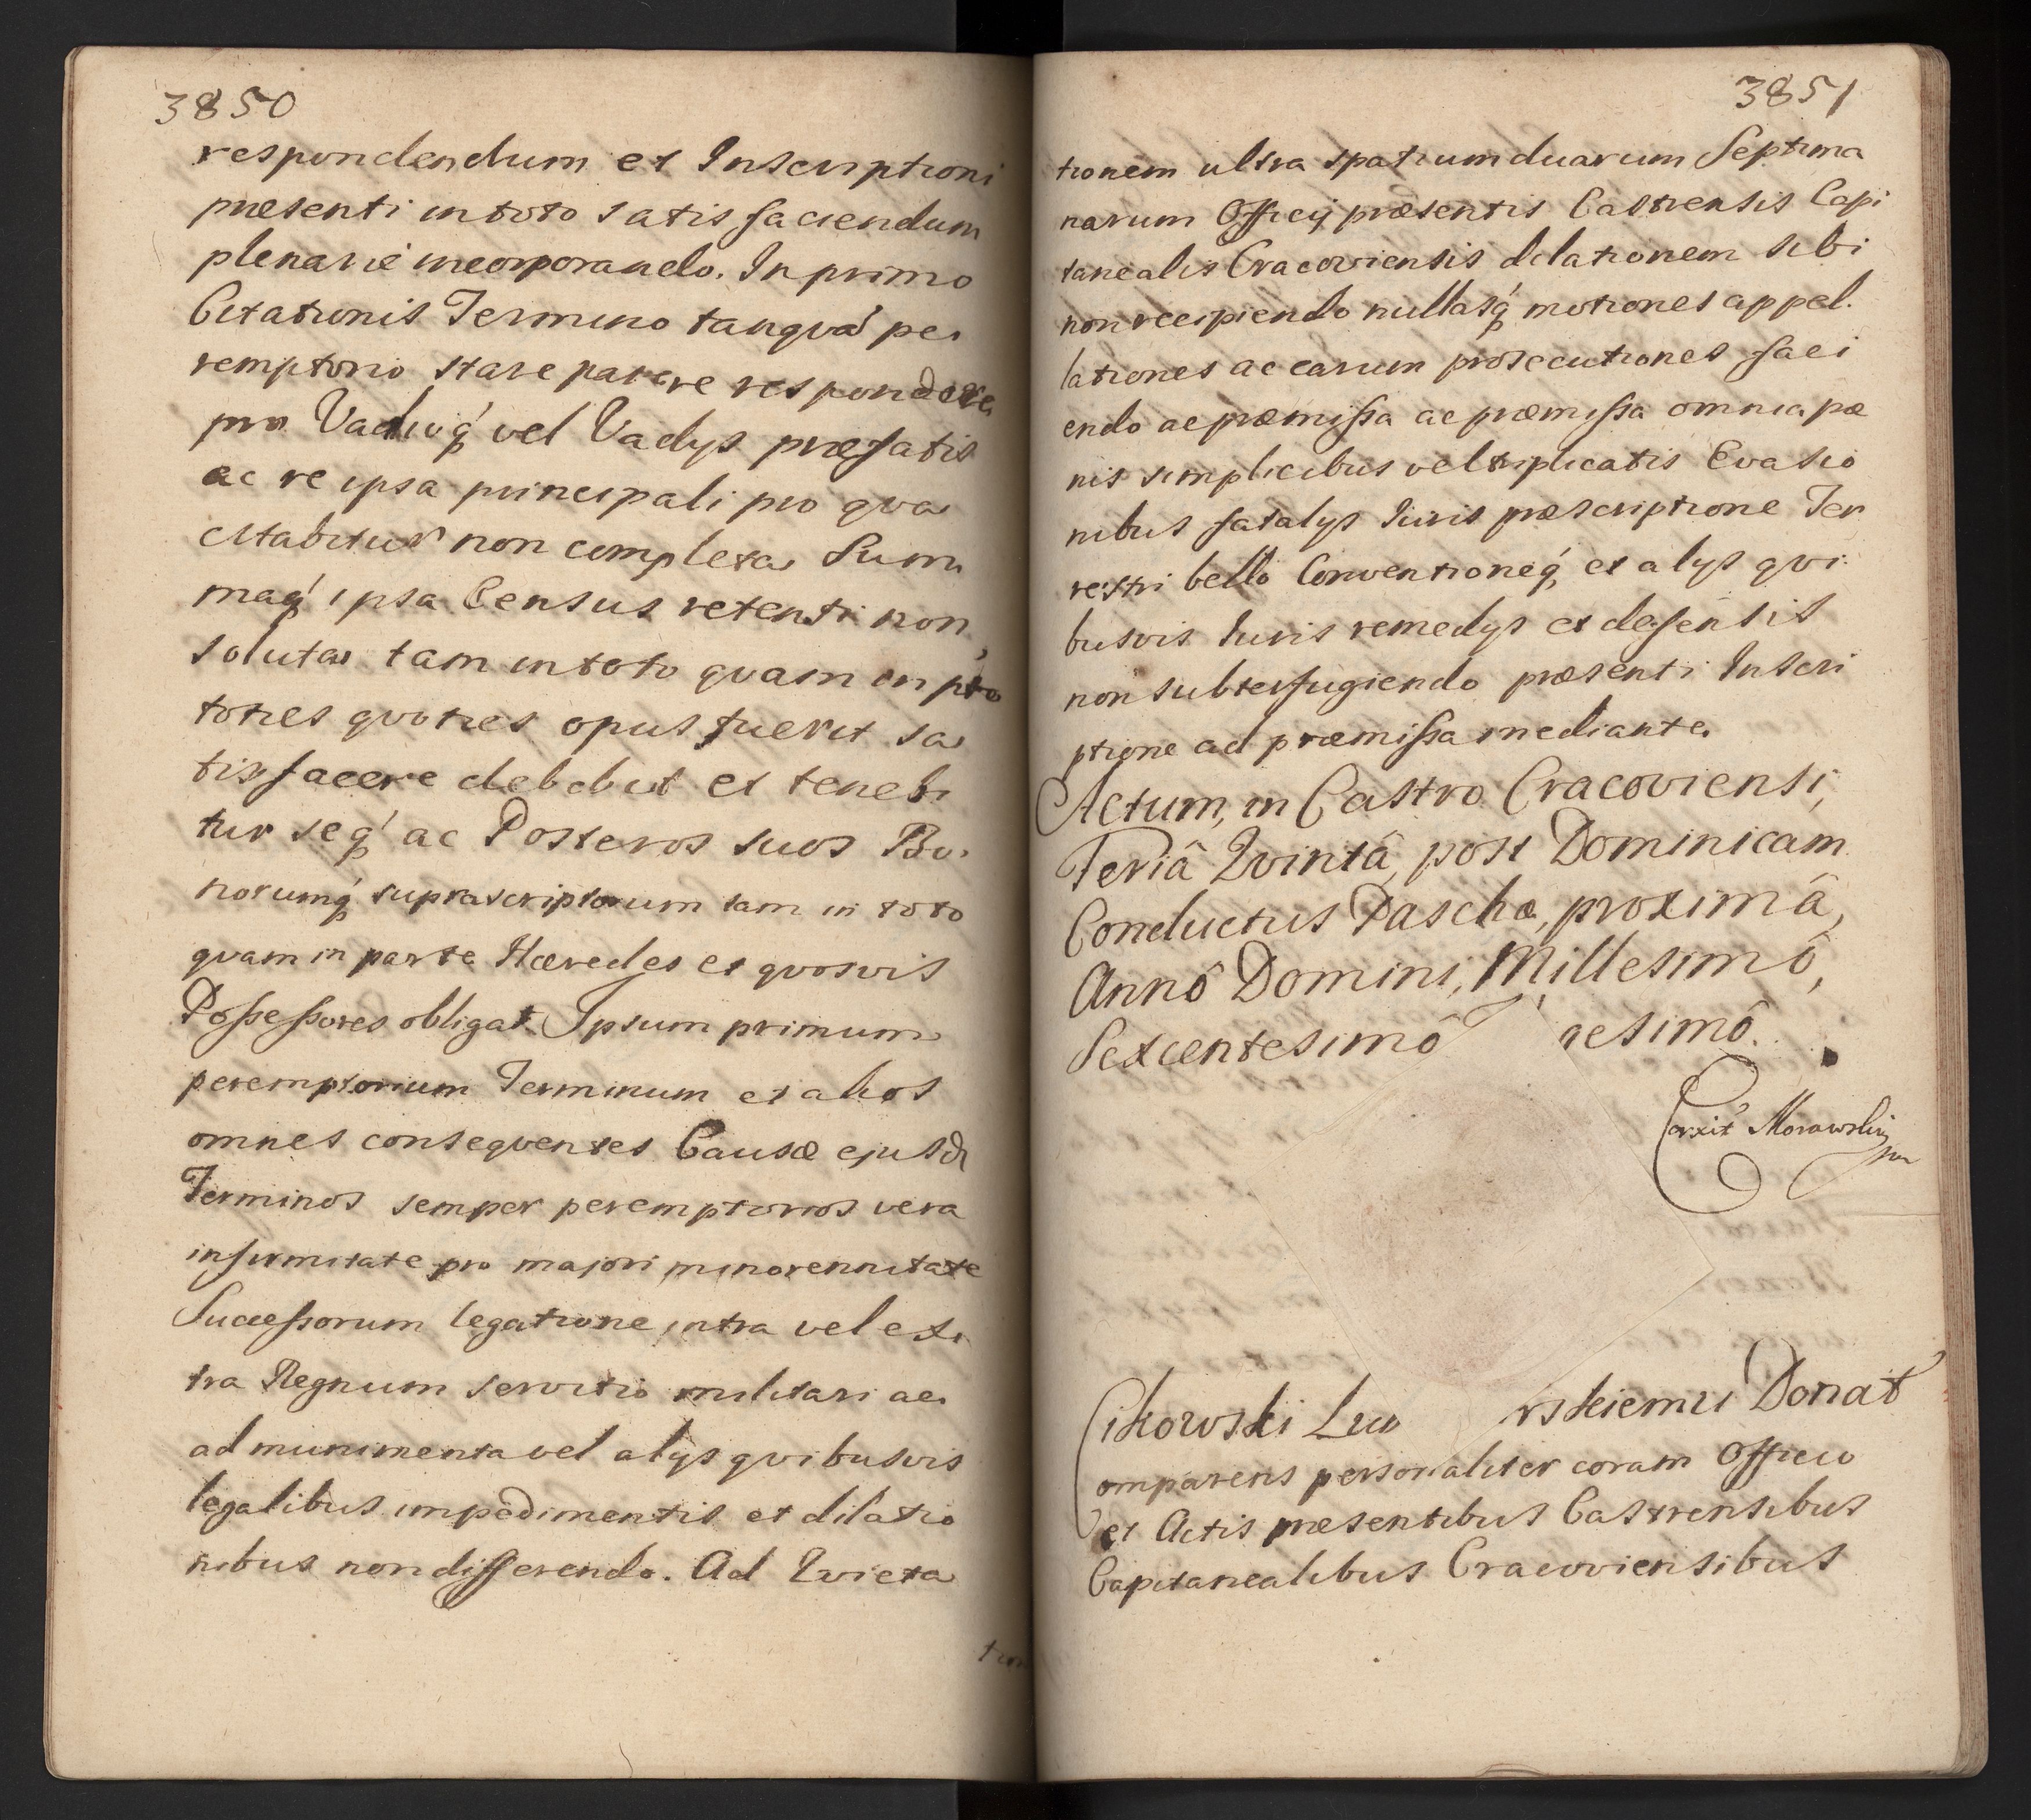 3850
respondendum et Inscriptioni
præsenti in toto satis faciendum
plenarie incorporando. In primo
Citationis Termino tanqvá per
remptorio stare parere respondere
pro Vadioq́ vel Vadys præfatis
ac re ipsa principali pro qva
citabitur non completa Sum
maq́ ipsa Census retenti non
soluta tam in toto qvam in pto
toties qvoties opus fuerit sa
tisfacere debebit et tenebi
tur seq́ ac Posteros suos Bo
norumq́ suprascriptorum tam in toto
qvam in parte Hæredes et qvosvis
Possessores obligat Ipsum primum
peremptorium Terminum et alios
omnes conseqventes Causæ ejusd
Terminos semper peremptorios vera
infirmitate pro majori minorennitate
Successorum legatione intra vel ex
tra Regnum servitio militari ac
ad munimenta vel alys qvibusvis
legalibus impedimentis et dilatio
nibus non differendo. Ad Qvieta
tion
3851
tionem ultra spatium duarum Septima
narum Officÿ præsentis Castrensis Capi
tanealis Cracoviensis dilationem sibi
non recipiendo nullasq́ motiones appel.
lationes ac earum prosecutiones faci
endo ac præmissa ac præmissa omnia pæ
nis simplicibus vel triplicatis Evasio
nibus fatalys Iuris præscriptione Ter
restri bello Conventioneq́ et alys qvi
busvis Iuris remedys et defensis
non subterfugiendo præsenti Inscri
ptione ad præmissa mediante.
Actum, in Castro Cracoviensi,
Feriâ Qvintâ, post Dominicam
Conductus Paschæ, proximâ,
Annô Domini, Millesimô,
Sexcentesimô gesimô.
Corxit Morawski
mp
Cikowski Lu rskiemu Donat
Comparens personaliter coram Officio
et Actis præsentibus Castrensibus
Capitanealibus Cracoviensibus